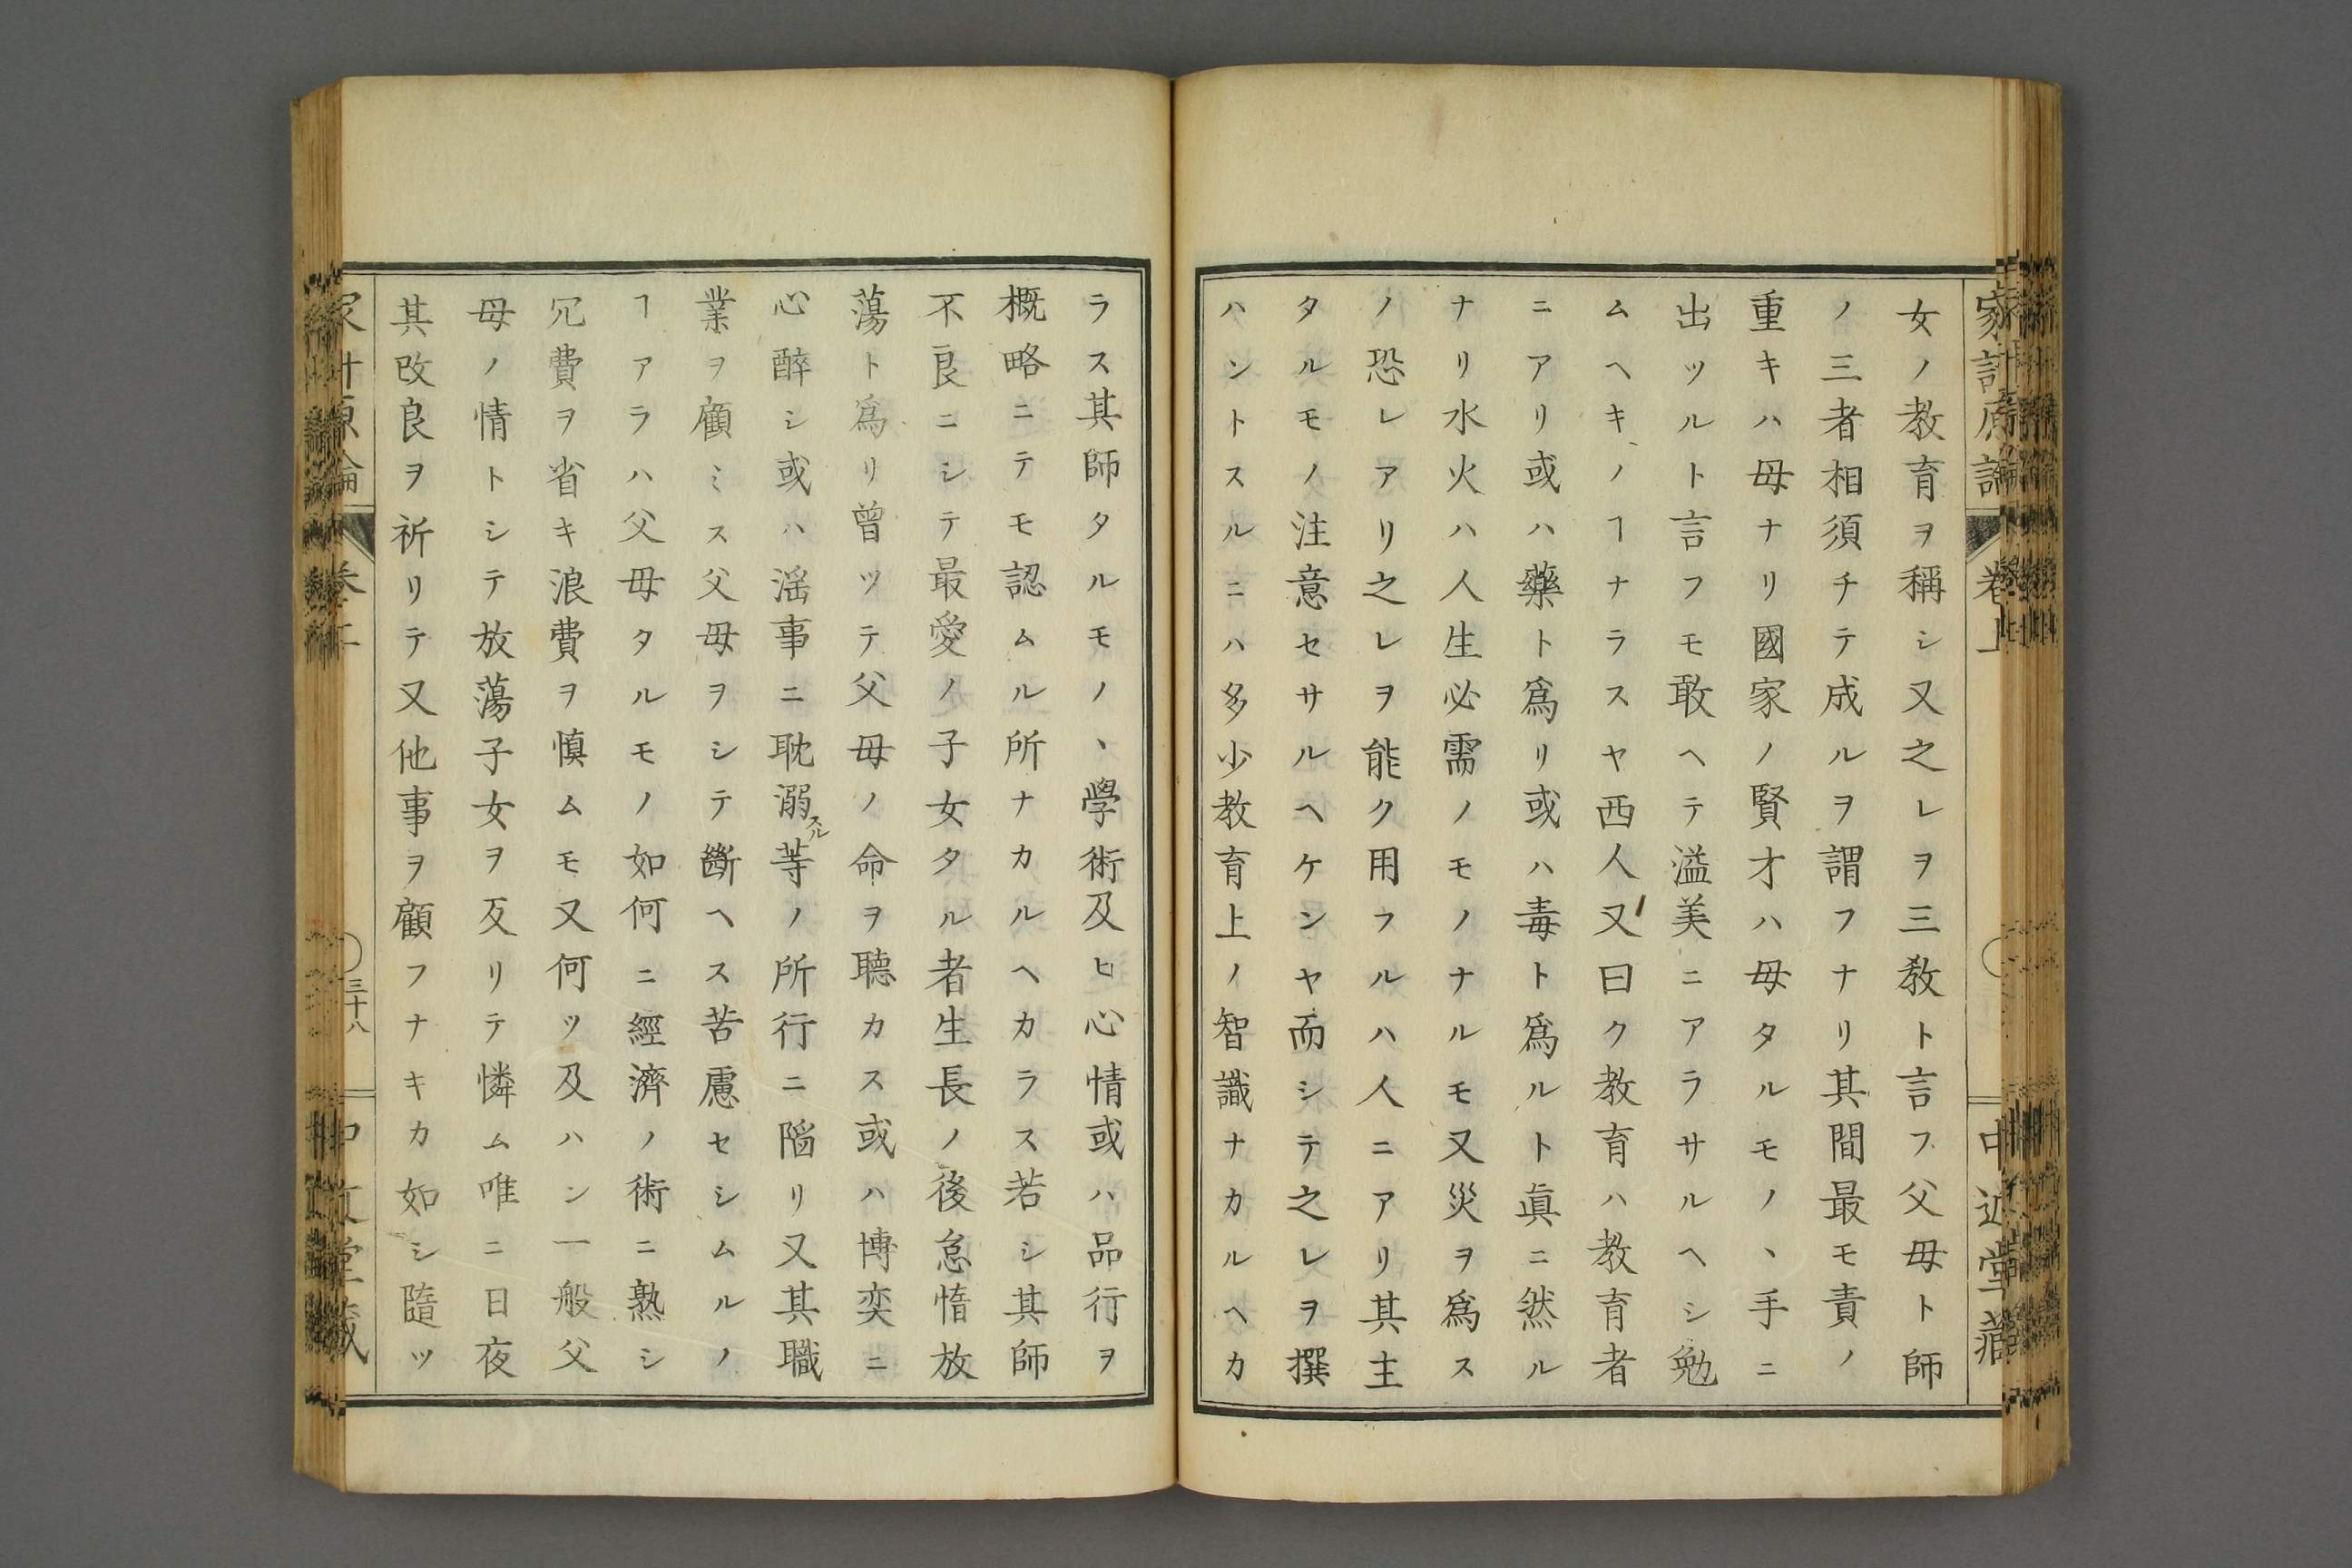 家計原論 卷上 中近堂藏
女ノ教育ヲ稱シ又之レヲ三教ト言フ父母ト師
ノ三者相須チテ成ルヲ謂フナリ其間最モ責ノ
重キハ母ナリ國家ノ賢才ハ母タルモノヽ手ニ
出ツルト言フモ敢ヘテ溢美ニアラサルヘシ勉
ムヘキノヿナラスヤ西人又曰ク教育ハ教育者
ニアリ或ハ藥ト爲リ或ハ毒ト爲ルト眞ニ然ル
ナリ水火ハ人生必需ノモノナルモ又災ヲ爲ス
ノ恐レアリ之レヲ能ク用フルハ人ニアリ其主
タルモノ注意セサルヘケンヤ而シテ之レヲ撰
ハントスルニハ多少教育上ノ智識ナカルヘカ
ラス其師タルモノヽ學術及ヒ心情或ハ品行ヲ
概略ニテモ認ムル所ナカルヘカラス若シ其師
不良ニシテ最愛ノ子女タル者生長ノ後怠惰放
蕩ト爲リ曾ツテ父母ノ命ヲ聽カス或ハ博奕ニ
心醉シ或ハ滛事ニ耽溺スル等ノ所行ニ陷リ又其職
業ヲ顧ミス父母ヲシテ斷ヘス苦慮セシムルノ
ヿアラハ父母タルモノ如何ニ經濟ノ術ニ熟シ
冗費ヲ省キ浪費ヲ愼ムモ又何ツ及ハン一般父
母ノ情トシテ放蕩子女ヲ反リテ憐ム唯ニ日夜
其改良ヲ祈リテ又他事ヲ顧フナキカ如シ隨ツ
家計原論 卷上 三十八 中近堂藏